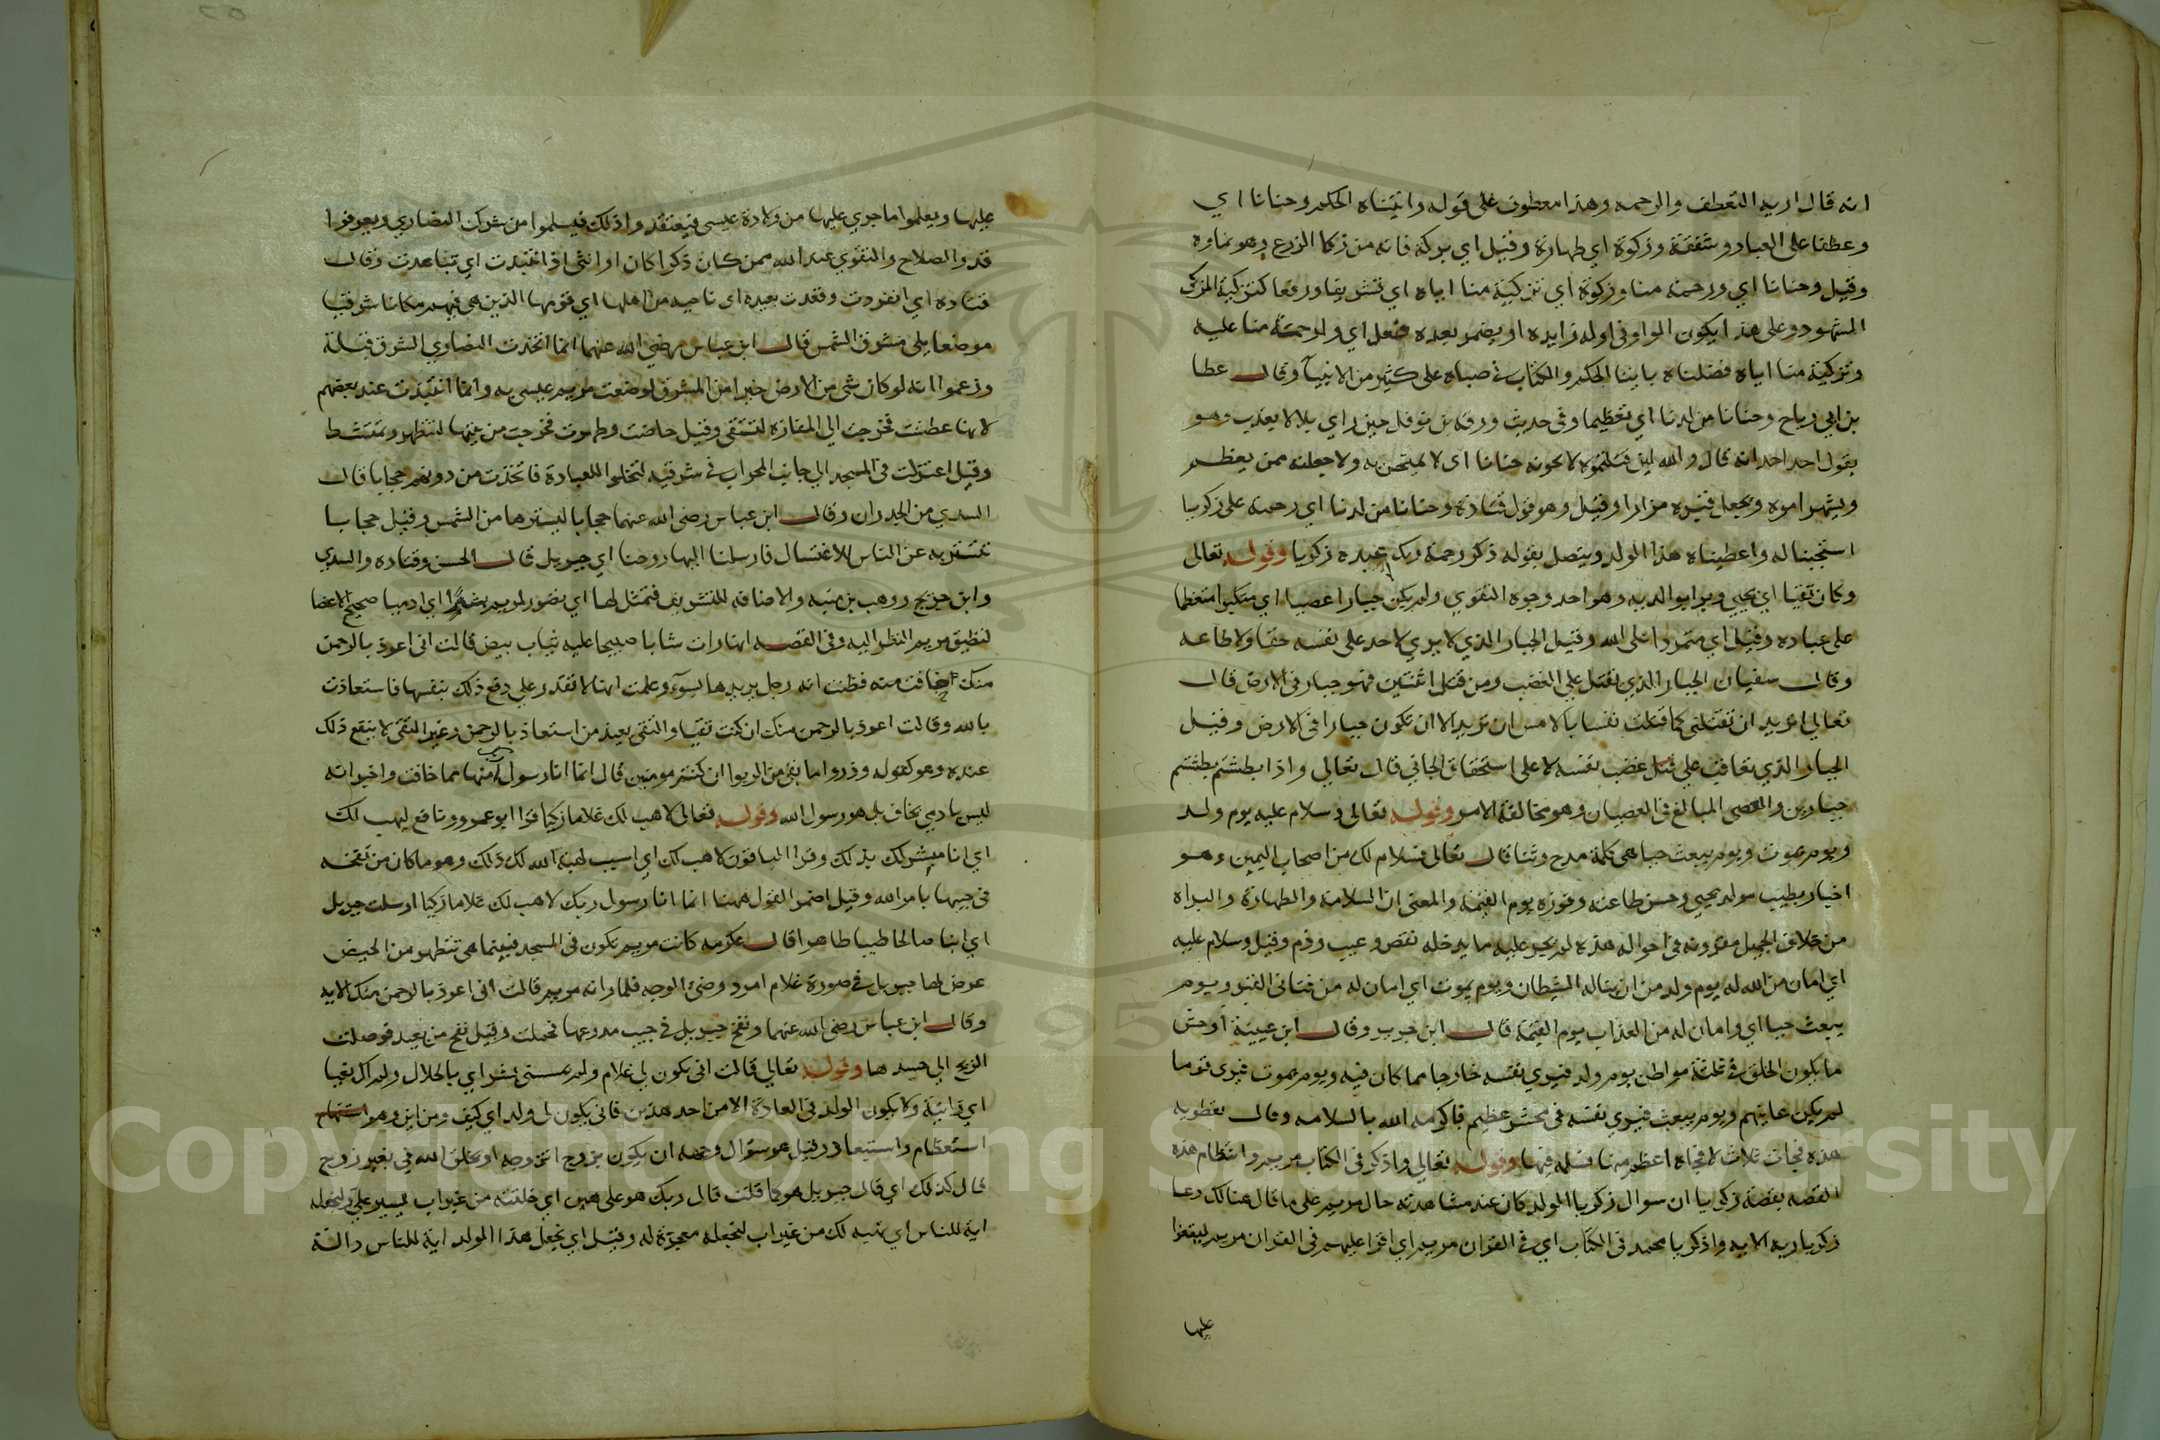 انه قال اريد التعطف والرحمه وهذا معطوف على قوله واتيناه الحكم وحنانا اي
وعطفا على العباد وشفقة وزكوة اي طهارة وقيل اي بركة فانه من زكا الزرع وهو نماوه
وقيل وحنانا اي ورحمة منا وزكوة اي تزكية منا اياه اي تشريفا ورفعا كتزكية المزكي
الشهود وعلى هذا يكون الواو في اوله زايده او يضمر بعده فعل اي ولرحمة منا عليه
وتزكية منا اياه فضلناه باينا الحكم والكتاب في صباه على كثير من الانبيآ وقال عطا
بن ابي رباح وحنانا من لدنا اي تعظيما وفى حديث ورقه بن نوفل حين راي بلالا يعذب وهو
يقول احد احد انه قال والله لين قتلتموه لاتخذنه حنانا اى لا ولاجعلنه ممن يعظم
ويشهر امره ويجعل قبره مزارا وقيل وهو قول قتادة وحنانا من لدنا اي رحمة على زكريا
استجبنا له واعطيناه هذا الولد ويتصل بقوله ذكر رحمة ربك عبده زكريا وقوله تعالى
وكان تقيا اي يحيي وبرا بوالديه وهو احد وجوه التقوي ولم يكن جبارا عصيا اي متكبرا متعظما
على عباده وقيل اي متمردا على الله وقيل الجبار الذي لا يري لاحد على نفسه حقا ولا طاعه
وقال سفيان الجبار الذي يقتل على الغضب ومن قتل اثنين فهو جبار فى الارض قال
تعالى اتريد ان تقتلنى كما قتلت نفسا بالامس ان تريد الا ان تكون جبارا فى الارض وقيل
الجبار الذي يعاقب على غضب نفسه لا على استحقاق الجاني قال تعالى واذا بطشتم بطشتم
جبارين والعصي المبالغ فى العصيان وهو مخالفة الامر وقوله تعالى وسلام عليه يوم ولد
ويوم يموت ويوم يبعث حيا هي كلمة مدح وثنا قال تعالى فسلام لك من اصحاب اليمين وهو
اخبار بطيب مولد يحيي وحسن طاعته وفوزه يوم القيمة والمعنى ان السلامة والطهارة والبراه
من خلاف الجميل مقرونه في احواله هذه لم يجر عليه ما يدخله نقص وعيب وذم وقيل وسلام عليه
اي امان من الله له يوم ولد من ان يناله الشيطان ويوم يموت اي امان له من فتانى القبر ويوم
يبعث حيا اي وامان له من العذاب يوم القيمة قال ابن حرب وقال ابن عيينة اوحش
ما يكون الخلق فى ثلثة مواطن يوم ولد فيري نفسه خارجا مما كان فيه ويوم يموت فيرى قوما
لم يكن عاينهم ويوم يبعث فيري نفسه فى محشر عظيم فاكرمه الله بالسلامه وقال نفطويه
هذه فجات ثلاث لا فجاة اعظم منها فسلمه فيها وقوله تعالى واذكر فى الكتاب مريم وانتظام هذه
القصه بقصة زكريا ان سوال زكريا الولد كان عند مشاهدته حال مريم على ما قال هنالك دعا
زكريا ربه الايه واذكر يا محمد فى الكتاب اي في القران مريم اي اقرا عليهم فى القران مريم ليقفوا
عليها
عليها ويعلموا ما جري عليها من ولادة عيسى فيعتقدوا ذلك فيسلموا من شرك النصاري ويعرفوا
قدر الصلاح والتقوي عند الله ممن كان ذكرا كان او انثى اذ انتبذت اي تباعدت وقال
قتاده اي انفردت وقعدت بعيده اى ناحيه من اهلها اي قومها الذين هي فيهم مكانا شرقيا
موضعا يلي مشرق الشمس قال ابن عباس رضي الله عنهما انما اتخذت النصاري الشرق قبلة
وزعموا انه لو كان شى من الارض خيرا من المشرق لوضعت مريم عيسى به وانما انتبذت عند بعضهم
لانها عطشت فخرجت الي المفازه لتستقي وقيل حاضت وطهرت فخرجت من بيتها لتتطهر وتمتشط
وقيل اعتزلت في المسجد الي جانب المحراب في شرقيه لتخلوا للعبادة فاتخذت من دونهم حجابا قال
السدي من الجدران وقال ابن عباس رضى الله عنهما حجابا ليسترها من الشمس وقيل حجابا
تتستر به عن الناس للاغتسال فارسلنا اليها روحنا اي جبريل قال الحسن وقتاده والسدي
وابن جريج ووهب بن منبه والاضافه للتشريف فتمثل لها اي تصور لمريم بشرا اي ادميا صحيح الاعضا
لتطيق مريم النظر اليه وفى القصه انها رات شابا صبيحا عليه ثياب بيض قالت انى اعوذ بالرحمن
منك خافت منه فظنت انه رجل يريدها بسوء وعلمت انها لا تقدر على دفع ذلك بنفسها فاستعاذت
بالله وقالت اعوذ بالرحمن منك ان كنت تقيا والتقى يعيذ من استعاذ بالرحمن وغير التقى لا ينفع ذلك
عنده وهو كقوله وذروا ما بقي من الربوا ان كنتم مومنين قال انما انا رسول ربك امنها مما خافت واخبر انه
ليس بادمي يخاف بل هو رسول الله وقوله تعالى لاهب لك غلاما زكيا قرا ابو عمرو ونافع ليهب لك
اي انا مبشرك بذلك وقرا الباقون لاهب لك اي اسبب لهبة الله لك ذلك وهو ما كان من نفخه
فى جيبها بامر الله وقيل اضمر القول ههنا انما انا رسول ربك لاهب لك غلاما زكيا ارسلت جبريل
اي ابنا صالحا طيبا طاهرا قال عكرمه كانت مريم تكون فى المسجد فبينما هى تتطهر من الحيض
عرض لها جبريل في صورة غلام امرد وضئ الوجه فلما راته مريم قالت انى اعوذ بالرحمن منك الايه
وقال ابن عباس رضى الله عنهما ونفخ جبريل فى جيب مدرعها فحملت وقيل نفخ من بعيد فوصلت
الريح الي جسدها وقوله تعالي قالت انى يكون لي غلام ولم يمسسنى بشر اي بالحلال ولم اك بغيا
اي زانية ولا يكون الولد فى العادة الا من احد هذين فانى يكون لى ولد اي كيف ومن اين وهو استفهام
استعظام واستبعاد وقيل هو سؤال وجهه ان يكون بزوج اتزوجه او يخلق الله فى بغير زوج
قال كذلك اي قال جبريل هو كما قلت قال ربك هو على هين اي خلقته من غير اب يسير على ولنجعله
اية للناس اي نهبه لك من غير اب لنجعله معجزة له وقيل اي نجعل هذا الولد اية للناس دالة
Copyright © King Saud University